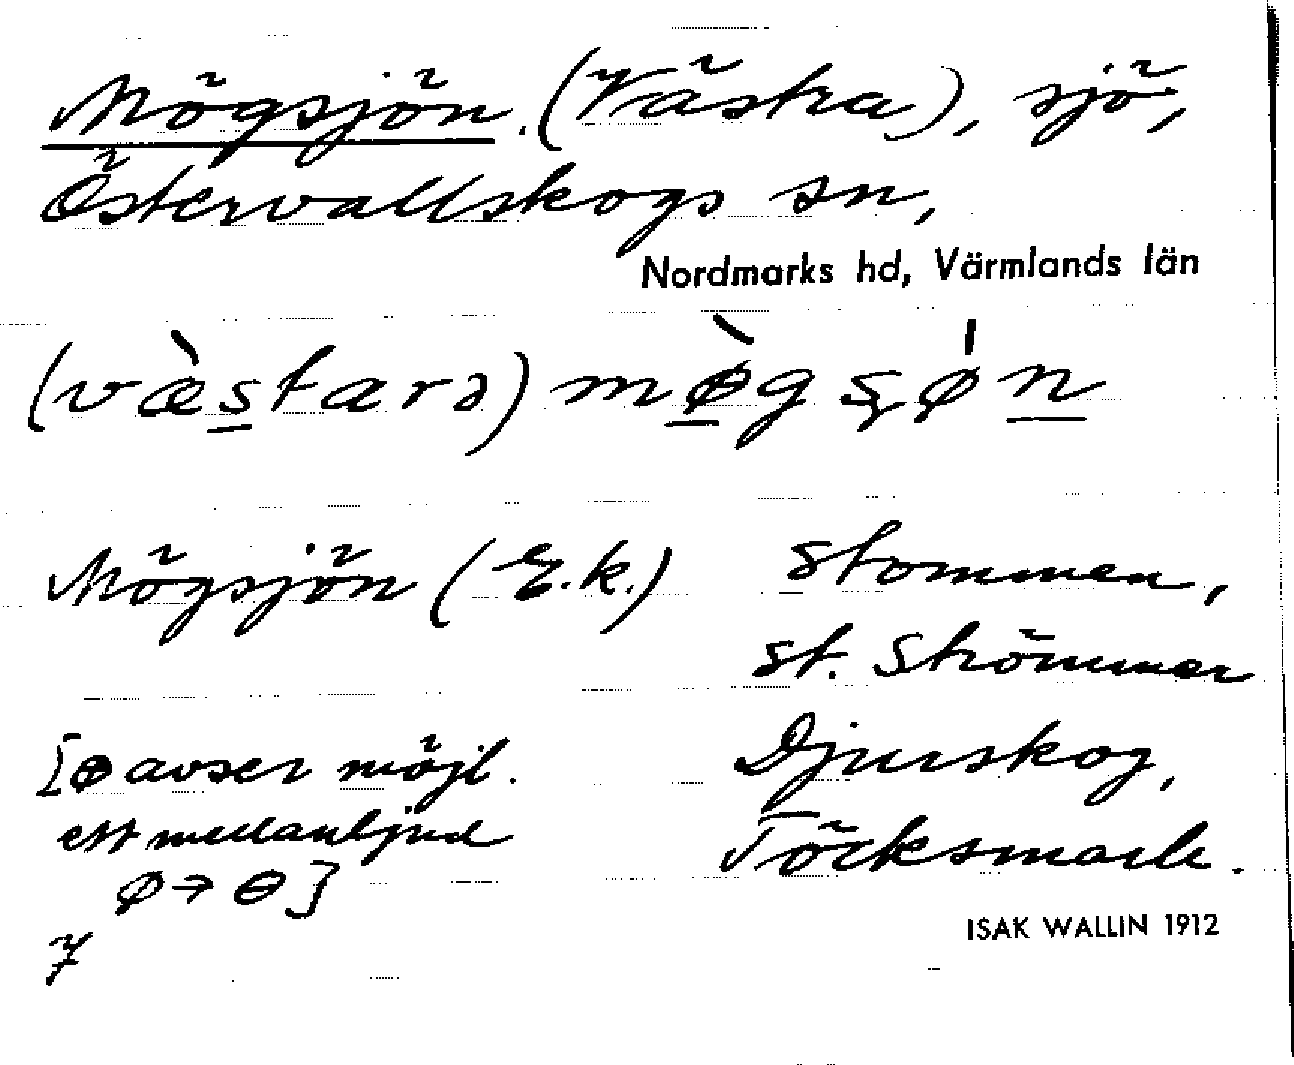 Mögsjön (Västra), sjö,
Östervallskogs sn,
Nordmarks hd, Värmlands län
(væ̀starə) mø̀gsøn
Mögsjön (E.k.) Stommen,
st. Strömmer
[ɵ avser möjl. Djurskog,
ett mellanljud Töcksmark.
ø → ɵ]
7
ISAK WALLIN 1912